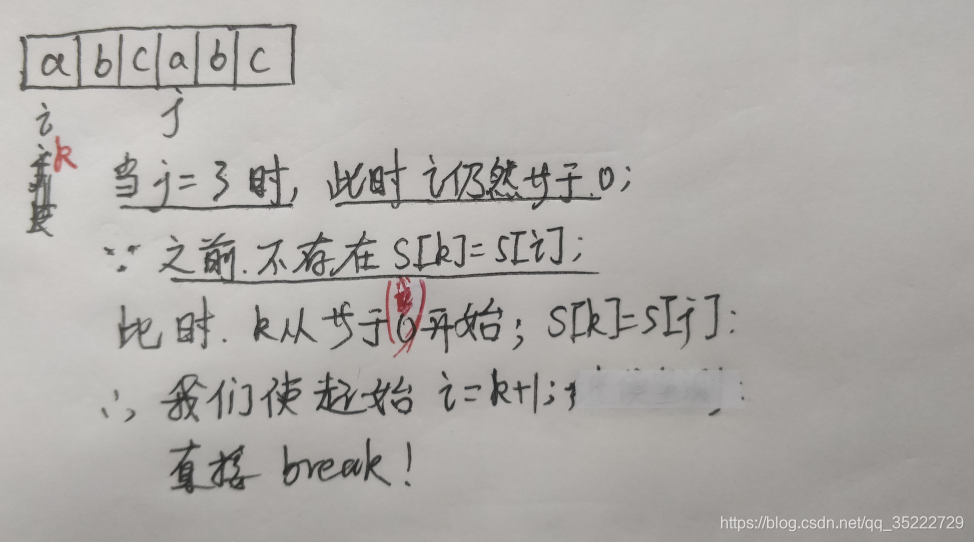 a b c a b c
i j
k
当 j=3 时, 此时 i 仍然等于 0;
∵ 之前.不存在 S[k]=S[i];
此时. k从等于0开始; S[k]=S[j]:
∴ 我们使起始 i=k+1;
直接 break!
https://blog.csdn.net/qq_35222729